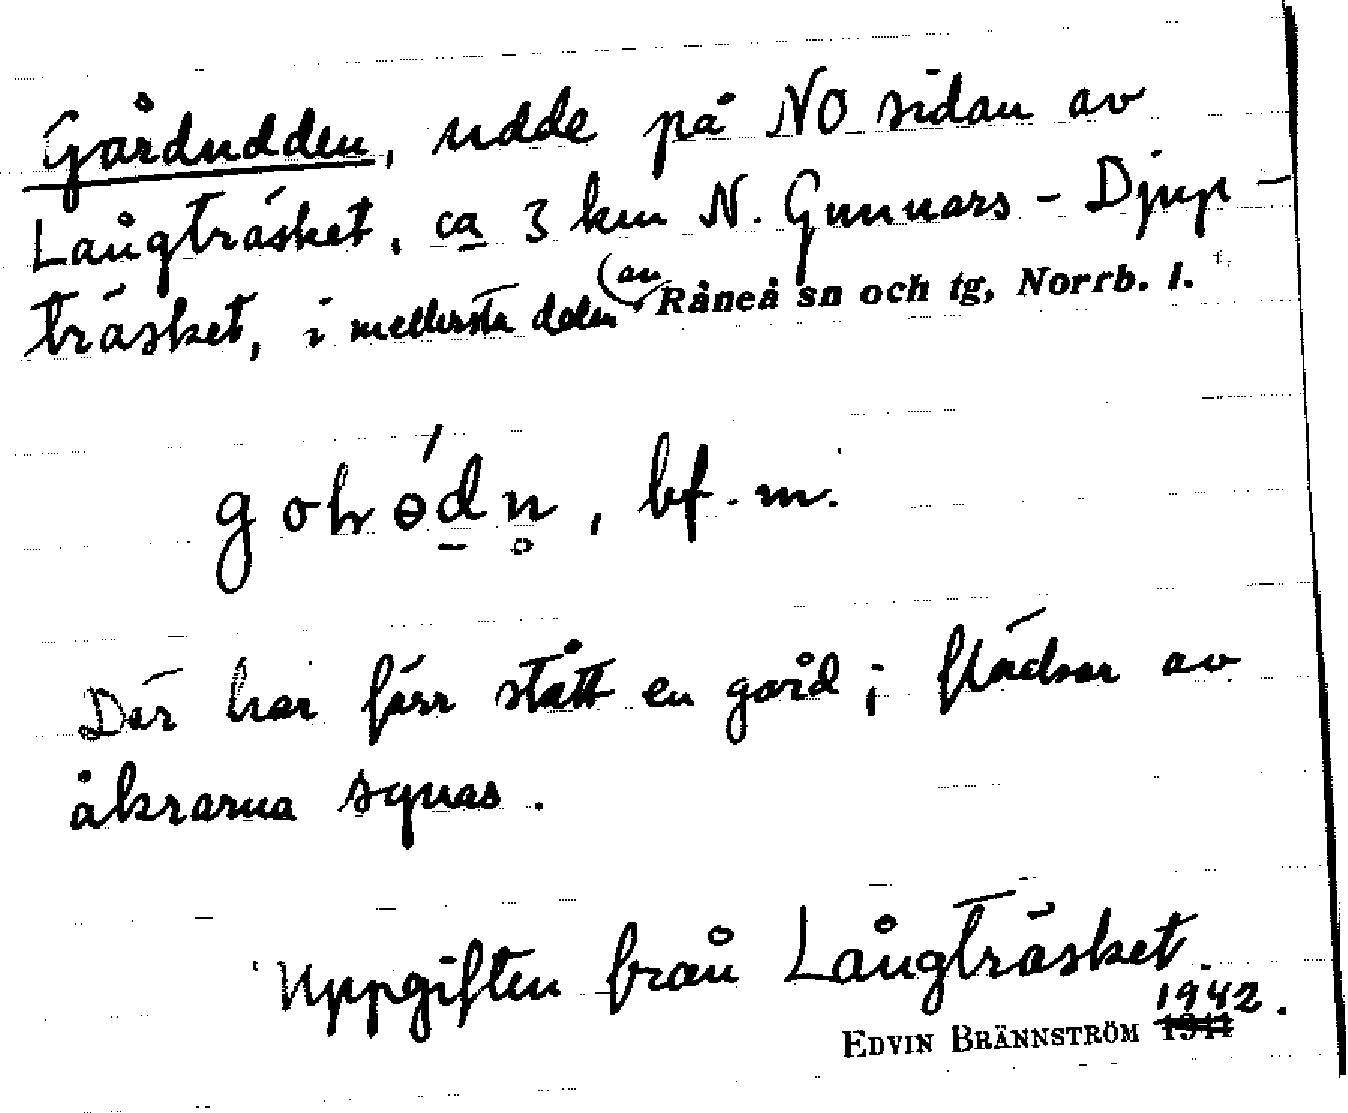 Gårdudden, udde på NO sidan av
Långträsket, ca 3 km N. Gunnars-Djup-
träsket, i mellersta delen av Råneå sn och tg, Norrb. l.
gohɵ́dn̥, bf. m.
Där har förr stått en gård; fläckar av
åkrarna synas.
Uppgiften från Långträsket.
1942.
EDVIN BRÄNNSTRÖM 1941